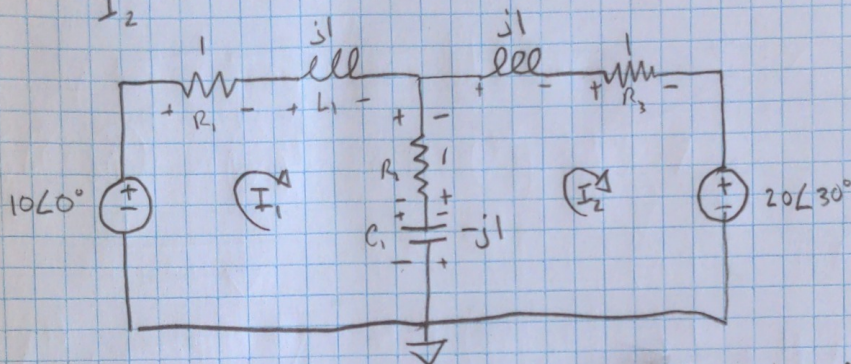 I2
1 j1 j1 1
+ R1 - + L1 - + - + R3 -
+ -
R2 1
- +
10∠0° + - I1 I2 + - 20∠30°
+ -
C1 -j1
- +